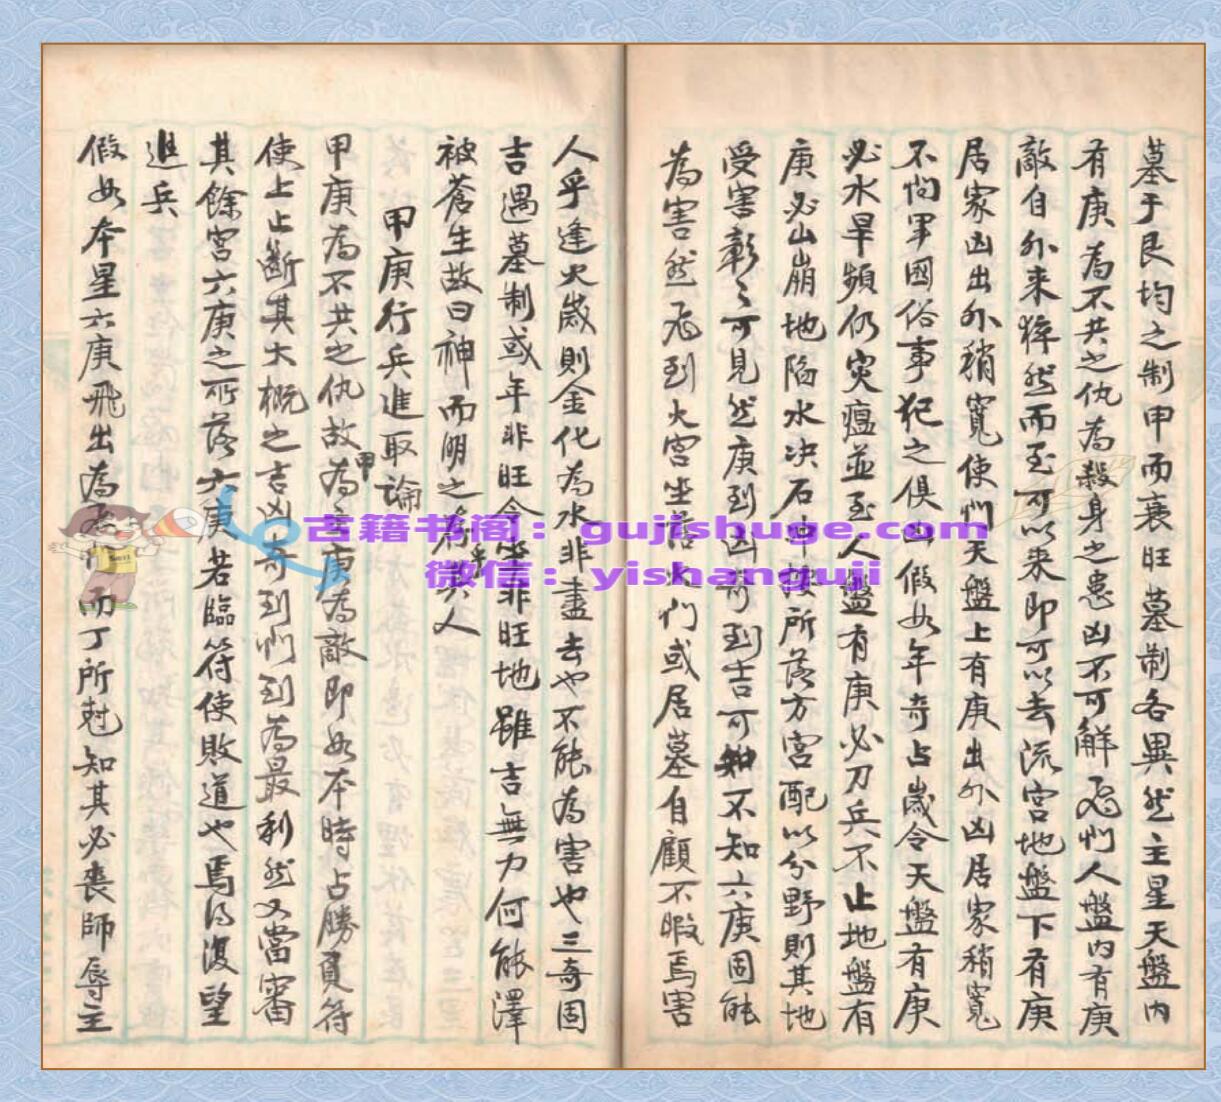 墓于艮均之制甲而衰旺墓制各異然主星天盤内
有庚為不共之仇為殺身之患凶不可解飛门人盤内有庚
敵自外来猝然而至可以来即可以去流宮地盤下有庚
居家凶出外稍寬使门天盤上有庚出外凶居家稍寬
不问軍國俗事犯之俱凶假如年奇占歲令天盤有庚
必水旱頻仍灾瘟並至人盤有庚必刀兵不止地盤有
庚必山崩地陷水决石冲按所落方宮配以分野則其地
受害彰々可見然庚到凶奇到吉可知不知六庚固能
為害然飛到火宮坐落火们或居墓自顧不暇焉害
人乎逢火歲則金化為水非盡去也不能為害也三奇固
吉遇墓制或年非旺令坐非旺地雖吉無力何能澤
被蒼生故曰神而明之存乎其人
甲庚行兵進取論
甲庚為不共之仇故為甲主庚為敵即如本時占勝負符
使上止断其大概之吉凶奇到们到為最利然又當審
其餘宮六庚之所落六庚若臨符使敗道也焉得復望
進兵
假如本星六庚飛出為 而丁所尅知其必喪師辱主
古籍书阁：gujishuge.com
微信：yishanguji